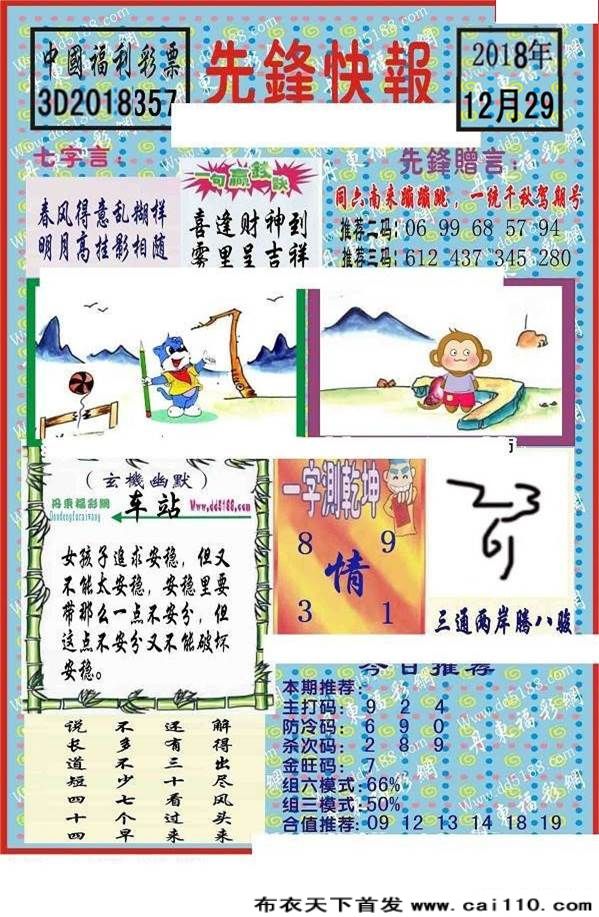 中國福利彩票
3D2018357
先鋒快報
2018年
12月29
七字言：
春风得意乱糊样
明月高挂影相随
一句赢錢訣
喜逢财神到
雾里呈吉祥
先鋒贈言：
同六南来蹦蹦跳，一统千秋驾期号
推荐二码：06 99 68 57 94
推荐三码：612 437 345 280
（玄機幽默）
丹東福彩網
Dandongfucaiwang
车站
Www.dd5188.com
女孩子追求安稳，但又
不能太安稳，安稳里要
带那么一点不安分，但
这点不安分又不能破坏
安稳。
一字测乾坤
8 9
情
3 1
23
61
三通两岸腾八骏
说长道短四十四
不多不少七个早
还有三十看过来
解得出尽风头来
今日推荐
本期推荐：
主打码：9 2 4
防冷码：6 9 0
杀次码：2 8 9
金旺码：7
组六模式：66%
组三模式：50%
合值推荐：09 12 13 14 18 19
布衣天下首发 www.cai110.com